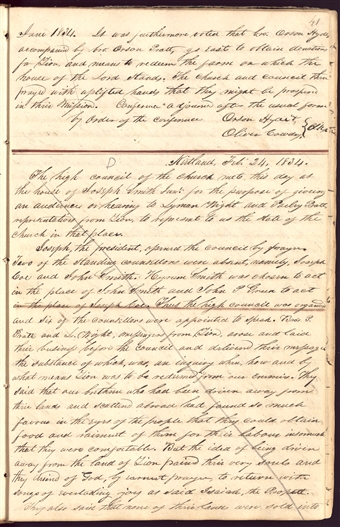 41
June 1834. It was furthermore voted that bro Orson Hyde,
accompanied by bro Orson Pratt, go east to obtain donations
for Zion, and means to redeem the farm on which the
house of the Lord stands. The church and council then
prayed with uplifted hands that they might be prospered
in their mission. Conference adjourned after the usual form
by order of the conference. Orson Hyde
Oliver Cowdery } Clerks
D
Kirtland, Feb. 24, 1834.
The high council of the church met this day at
the house of Joseph Smith Junr for the purpose of giving
an audience or hearing to Lyman Wight and Parley Pratt
representatives from Zion, to represent to us the state of the
church in that place.
Joseph, the president, opened the council by prayer.
Two of the standing councillors were absent, namely, Joseph
Coe and John Smith. Hyrum Smith was chosen to act
in the place of John Smith and John P. Green to act
in the place of Joseph Coe. Thus the high council was organized
and six of the councillors were appointed to speak. Bro. P.
Pratt and L. Wight, messengers from Zion, arose and laid
their business before the council and delivered their message,
the substance of which was an inquiry when, how and by
what means Zion was to be redeemed from our enemies. They
said that our brethren who had been driven away from
their lands and scattered abroad had found so much
favour in the eyes of the people that they could obtain
food and raiment of them for their labour insomuch
that they were comfortable. But the idea of being driven
away from the land of Zion pained their very souls and
they desired of God, by earnest prayer, to return with
songs of everlasting joy as said Isaiah, the Prophet.
They also said that none of their lands were sold into